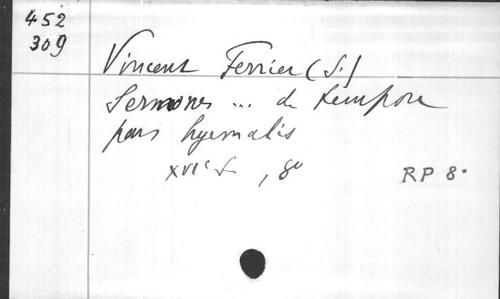 452
309
Vincent Ferrier (S.)
Sermones ... de tempore
pars hyemalis
XVIe s , 8°
RP 8°